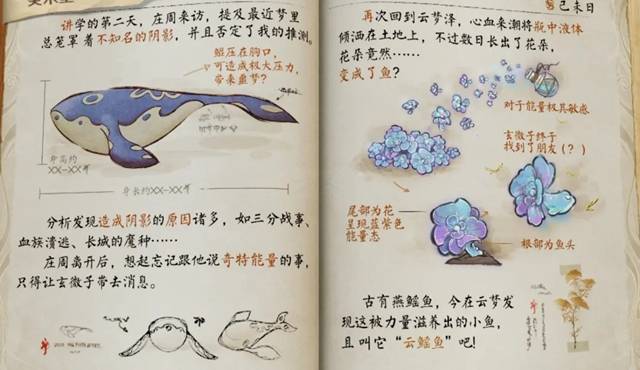 讲学的第二天，庄周来访，提及最近梦里
总笼罩着不知名的阴影，并且否定了我的推测。
鲲压在胸口，
可造成极大压力，
带来噩梦？
身高约
XX-XX米
身长约XX-XX米
分析发现造成阴影的原因诸多，如三分战事、
血族溃逃、长城的魔种……
在周离开后，想起忘记跟他说奇特能量的事，
只得让玄微子带去消息。
己未日
再次回到云梦泽，心血来潮将瓶中液体
倾洒在土地上，不过数日长出了花朵，
花朵竟然……
变成了鱼？
对于能量极其敏感
玄微子终于
找到了朋友（？）
尾部为花
呈现蓝紫色
能量态
根部为鱼头
古有燕鳐鱼，今在云梦发
现这被力量滋养出的小鱼，
且叫它“云鳐鱼”吧！